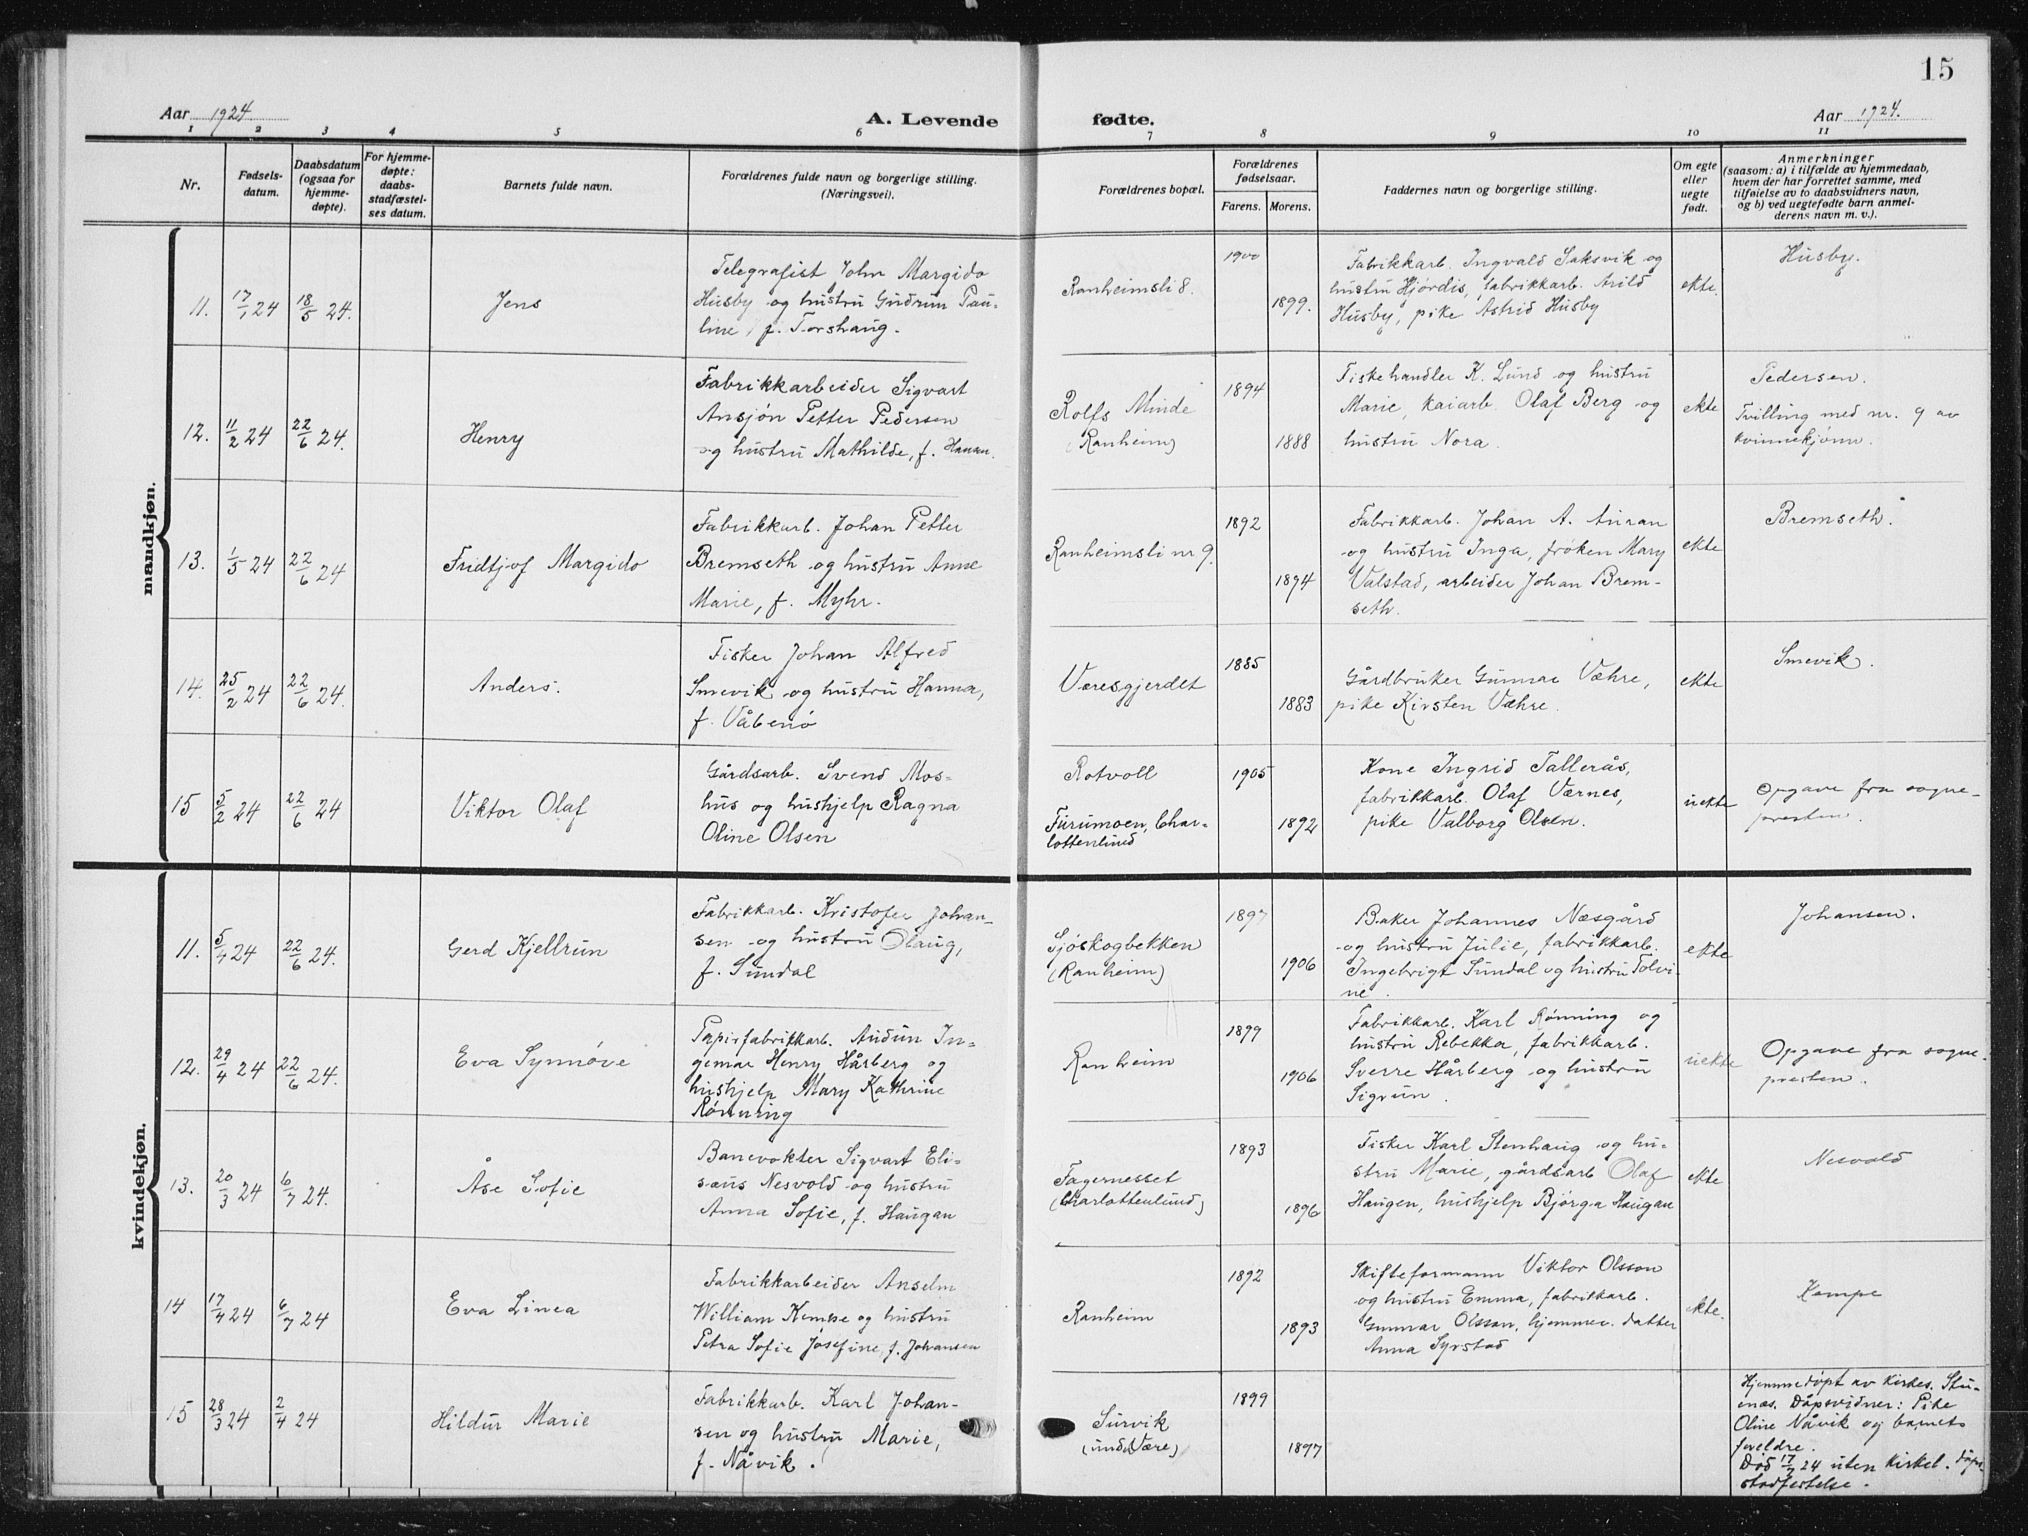 15
Aar 1924. A. Levende fødte. Aar 1924.
1 2 3 4 5 6 7 8 9 10 11
Nr.
Fødsels-
datum.
Daabsdatum
(ogsaa for
hjemme-
døpte).
For hjemme-
døpte:
daabs-
stadfæstel-
ses datum.
Barnets fulde navn.
Forældrenes fulde navn og borgerlige stilling.
(Næringsvei).
Forældrenes bopæl.
Forældrenes
fødselsaar.
Farens. Morens.
Faddernes navn og borgerlige stilling.
Om egte
eller
uegte
født.
Anmerkninger
(saasom: a) i tilfælde av hjemmedaab,
hvem der har forrettet samme, med
tilføielse av to daabsvidners navn,
og b) ved uegtefødte barn anmel-
derens navn m. v.).
mandkjøn.
11. 17/1 24 18/5 24. Jens
Telegrafist John Margido
Husby og hustru Gudrun Pau-
line, f. Torshaug.
Ranheimsli 8.
1900
1899.
Fabrikkarb. Ingvald Saksvik og
hustru Hjørdis, fabrikkarb. Arild
Husby, pike Astrid Husby
ekte.
Husby.
12. 11/2 24 22/6 24. Henry
Fabrikkarbeider Sigvart
Ansjøn Petter Pedersen
og hustru Mathilde, f. Hanan.
Rolfs Minde
(Ranheim)
1894
1888
Fiskehandler K. Lund og hustru
Marie, kaiarb. Olaf Berg og
hustru Nora.
ekte
Pedersen.
Tvilling med nr. 9 av
kvinnekjønn.
13. 1/5 24 22/6 24 Fridtjof Margido
Fabrikkarb. Johan Petter
Bremseth og hustru Anne
Marie, f. Myhr.
Ranheimsli nr 9.
1892
1894
Fabrikkarb. Johan A. Auran
og hustru Inga, frøken Mary
Valstad, arbeider Johan Brem-
seth.
ekte
Bremseth.
14. 25/2 24 22/6 24. Anders.
Fisker Johan Alfred
Smevik og hustru Hanna,
f. Våbenø
Væresgjerdet
1885
1883
Gårdbruker Gunnar Væhre,
pike Kirsten Væhre.
ekte
Smevik.
15 5/2 24 22/6 24 Viktor Olaf
Gårdsarb. Svend Mos-
hus og hushjelp Ragna
Oline Olsen
Rotvoll
Furumoen, Char-
lottenlund
1905
1892
Kone Ingrid Tallerås,
fabrikkarb. Olaf Værnes,
pike Valborg Olsen.
uekte
Opgave fra sogne-
presten.
kvindekjøn.
11. 5/4 24 22/6 24. Gerd Kjellrun
Fabrikkarb. Kristofer Johan-
sen og hustru Olaug,
f. Sundal
Sjøskogbekken
(Ranheim)
1897
1906
Baker Johannes Næsgård
og hustru Julie, fabrikkarb.
Ingebrigt Sundal og hustru Tolvi-
ne.
ekte
Johansen.
12. 29/4 24 22/6 24. Eva Synnøve
Papirfabrikkarb. Audun In-
gemar Henry Hårberg og
hushjelp Mary Kathrine
Rønning
Ranheim
1899
1906
Fabrikkarb. Karl Rønning og
hustru Rebekka, fabrikkarb.
Sverre Hårberg og hustru
Sigrun.
uekte
Opgave fra sogne-
presten.
13. 20/3 24 6/7 24. Åse Sofie
Banevokter Sigvart Eli-
sæus Nesvold og hustru
Anna Sofie, f. Haugan
Fagernesset
(Charlottenlund)
1893
1896
Fisker Karl Stenhaug og hu-
stru Marie, gårdsarb Olaf
Haugen, hushjelp Bjørga Haugan
ekte
Nesvold
14 17/4 24 6/7 24 Eva Linea
Fabrikkarbeider Anselm
William Kempe og hustru
Petra Sofie Josefine, f. Johansen
Ranheim
1892
1893
Skifteformann Viktor Olsson
og hustru Emma, fabrikkarb.
Gunnar Olsson, hjemmev. datter
Anna Syrstad
ekte.
Kempe
15 28/3 24 2/4 24 Hildur Marie
Fabrikkarb. Karl Johan-
sen og hustru Marie,
f. Nåvik.
Survik
(under Være)
1899
1897
Hjemmedøpt av kirkes. Stu-
enæs. Dåpsvidner: Pike
Oline Nåvik og barnets
foreldre.
Død 17/7 24 uten kirkel. dåps-
stadfestelse.